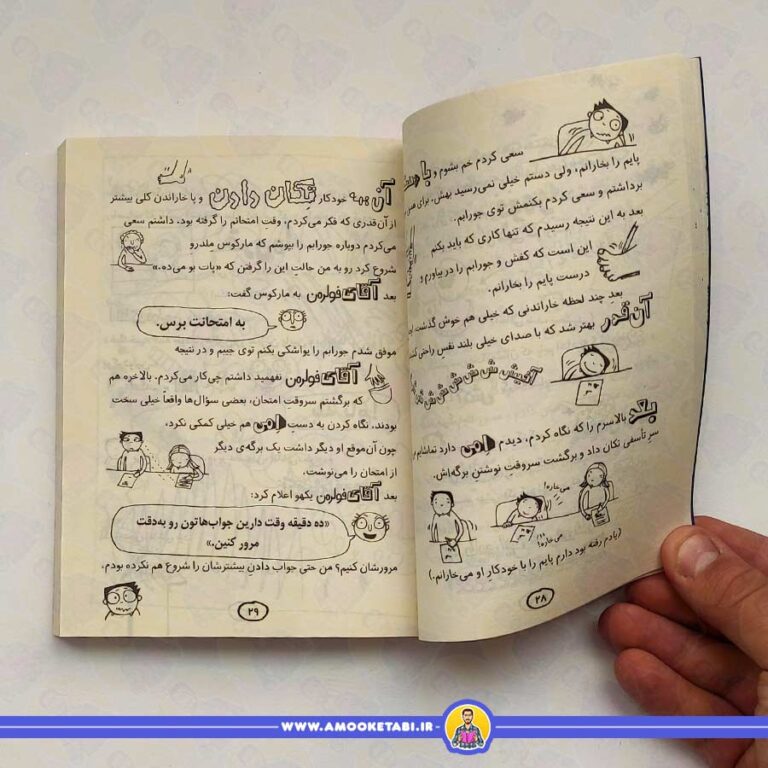 سعی کردم خم بشوم و با
پایم را بخارانم، ولی دستم خیلی نمی‌رسید بهش، برای همین
برداشتم و سعی کردم بکنمش توی جورابم.
بعد به این نتیجه رسیدم که تنها کاری که باید بکنم
این است که کفش و جورابم را در بیاورم و
درست پایم را بخارانم.
بعد چند لحظه خاراندنی که خیلی هم خوش گذشت،
آن‌قدر بهتر شد که با صدای خیلی بلند نفسِ راحتی
آخیش ش ش ش ش ش ش
بعد بالاسرم را که نگاه کردم، دیدم اِمی دارد تماشایم
سرِ تأسفی تکان داد و برگشت سروقتِ نوشتنِ برگه‌اش.
می‌خاره!
می‌خاره!
(یادم رفته بود دارم پایم را با خودکارِ او می‌خارانم.)
۲۸
آن همه خودکار تکان دادن و پا خاراندن کلی بیشتر
از آن‌قدری که فکر می‌کردم، وقت امتحانم را گرفته بود. داشتم سعی
می‌کردم دوباره جورابم را بپوشم که مارکوس ملدرو
شروع کرد رو به من حالتِ این را گرفتن که «پات بو می‌ده.»
بعد آقای فولرمن به مارکوس گفت:
به امتحانت برس.
موفق شدم جورابم را یواشکی بکنم توی جیبم و در نتیجه
آقای فولرمن نفهمید داشتم چی‌کار می‌کردم. بالاخره هم
که برگشتم سروقتِ امتحان، بعضی سؤال‌ها واقعاً خیلی سخت
بودند. نگاه کردن به دست اِمی هم خیلی کمکی نکرد،
چون آن‌موقع او دیگر داشت یک برگه‌ی دیگر
از امتحان را می‌نوشت.
بعد آقای فولرمن یکهو اعلام کرد:
«ده دقیقه وقت دارین جواب‌هاتون رو به‌دقت
مرور کنین.»
مرورشان کنیم؟ من حتی جواب دادنِ بیشترشان را شروع هم نکرده بودم.
۲۹
WWW.AMOOKETABI.IR